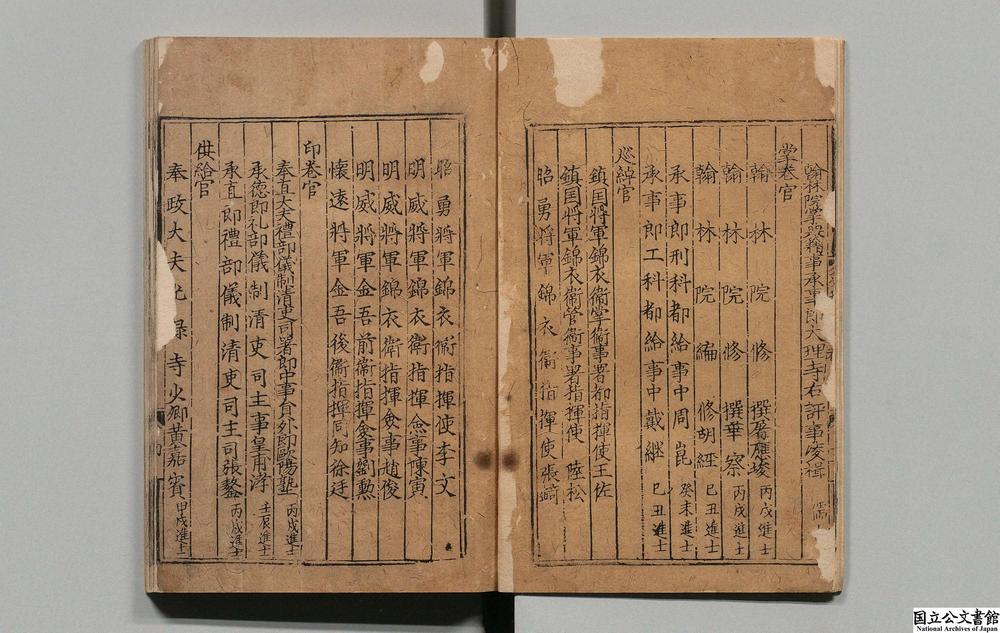 翰林院掌典籍事承事郎大理寺右評事凌楫 儒
掌卷官
翰林院修撰屠應埈 丙戌進士
翰林院修撰華察 丙戌進士
翰林院編修胡經 己丑進士
承事郎刑科都給事中周崑 癸未進士
承事郎工科都給事中戴繼 己丑進士
巡綽官
鎮国將軍錦衣衛掌衛事署都指揮使王佐
鎮国將軍錦衣衛管衛事署指揮使陸松
昭勇將軍錦衣衛指揮使張錡
昭勇將軍錦衣衛指揮使李文
明威將軍錦衣衛指揮僉事陳寅
明威將軍錦衣衛指揮僉事趙俊
明威將軍金吾前衛指揮僉事劉勲
懷遠將軍金吾後衛指揮同知徐廷
印卷官
奉直大夫禮部儀制清吏司署郎中事員外郎歐陽塾 丙戌進士
承德郎礼部儀制清吏司主事皇甫涍 壬辰進士
承直郎禮部儀制清吏司主司張鏊 丙戌進士
供給官
奉政大夫光禄寺少卿黃嘉賓 甲戌進士
国立公文書館
National Archives of Japan